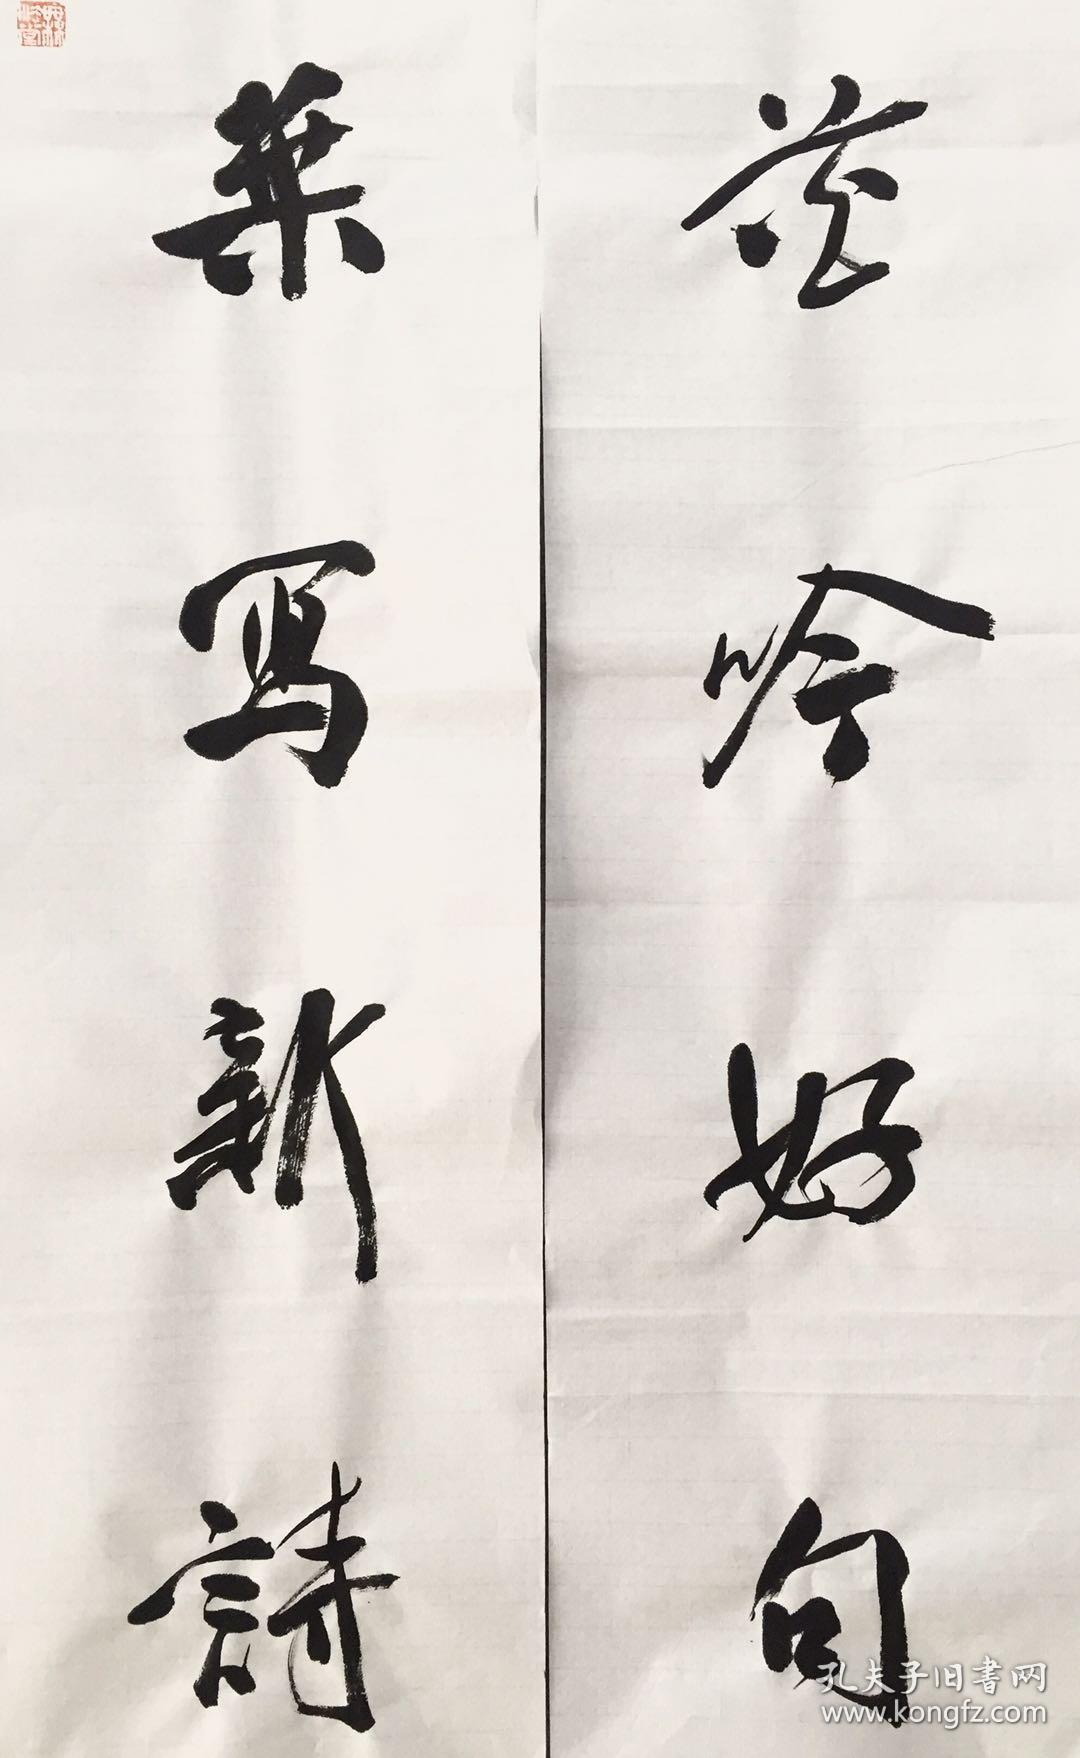 花吟好句
葉写新詩
孔夫子旧書网
www.kongfz.com